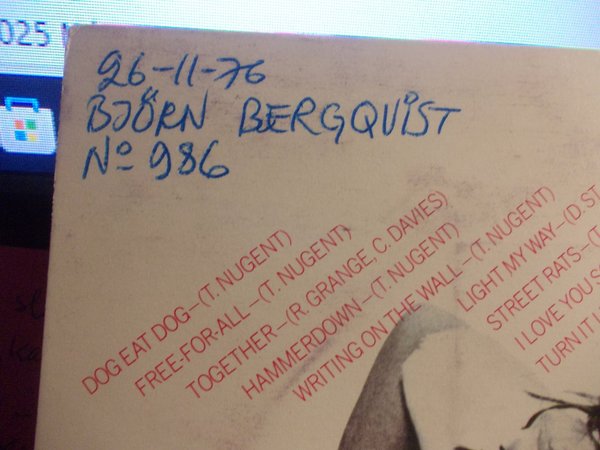 025
26-11-76
BJÖRN BERGQVIST
Nº 986
DOG EAT DOG – (T. NUGENT)
FREE-FOR-ALL – (T. NUGENT)
TOGETHER – (R. GRANGE, C. DAVIES)
HAMMERDOWN – (T. NUGENT)
WRITING ON THE WALL – (T. NUGENT)
LIGHT MY WAY – (D. ST
STREET RATS – (T
I LOVE YOU S
TURN IT